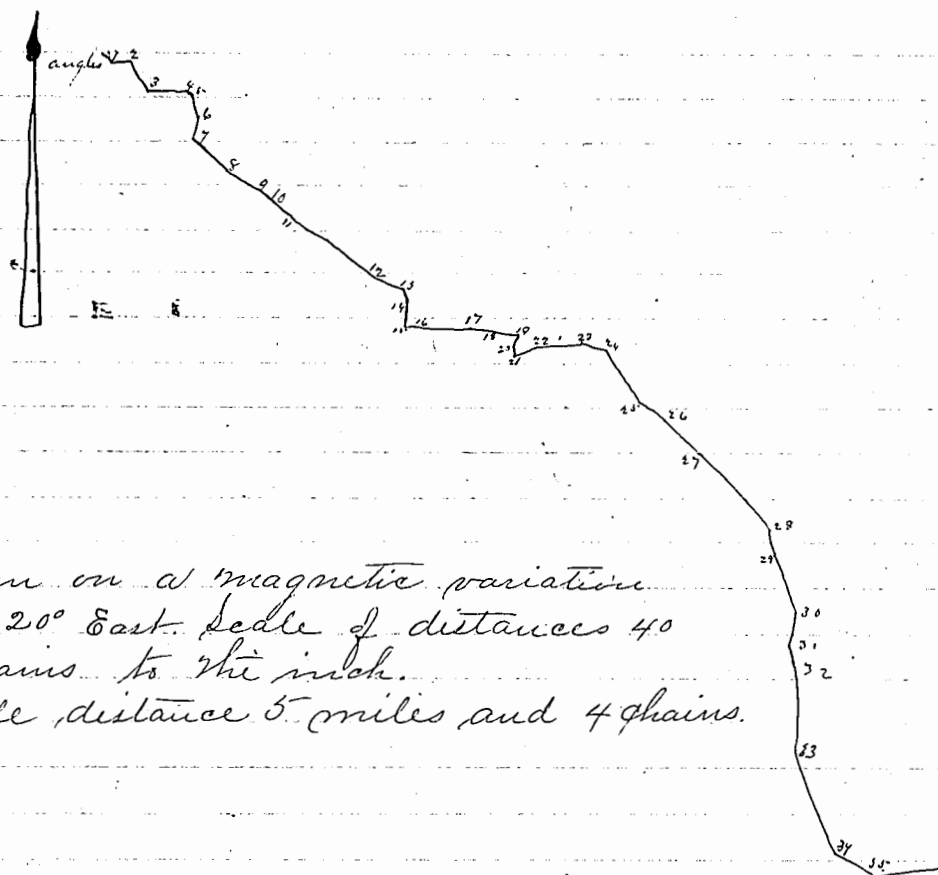 angles 1 2
3 4 5
6
7
8
9
10
11
12
13
14
15 16 17
18 19
20
21 22 23
24
25 26
27
28
29
30
31
32
on a magnetic variation
20° East. Scale of distances 40
to the inch.
distance 5 miles and 4 chains.
33
34
35